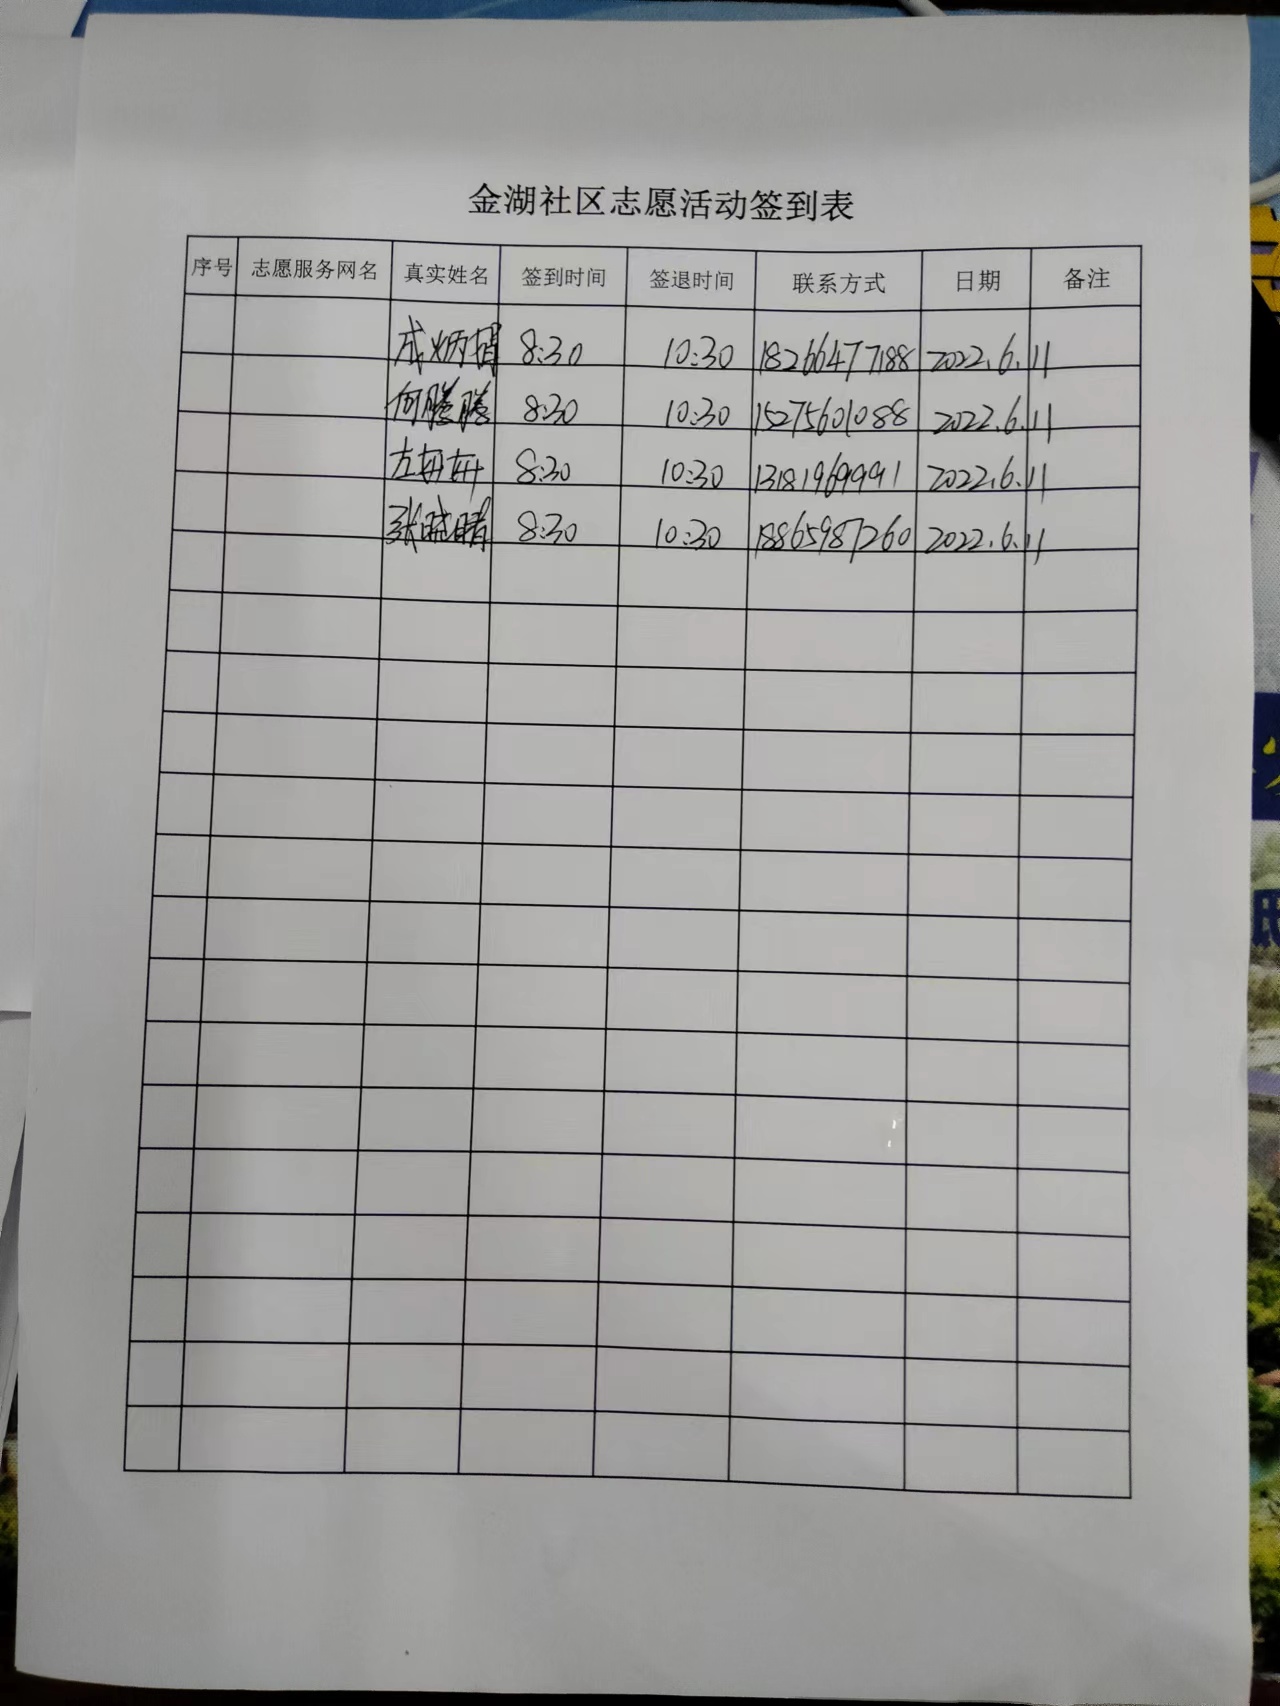 金湖社区志愿活动签到表
序号 志愿服务网名 真实姓名 签到时间 签退时间 联系方式 日期 备注
成炳 8:30 10:30 18266477188 2022.6.11
何腾腾 8:30 10:30 15275601088 2022.6.11
左妍妍 8:30 10:30 13181969991 2022.6.11
张晓晴 8:30 10:30 18865987260 2022.6.11